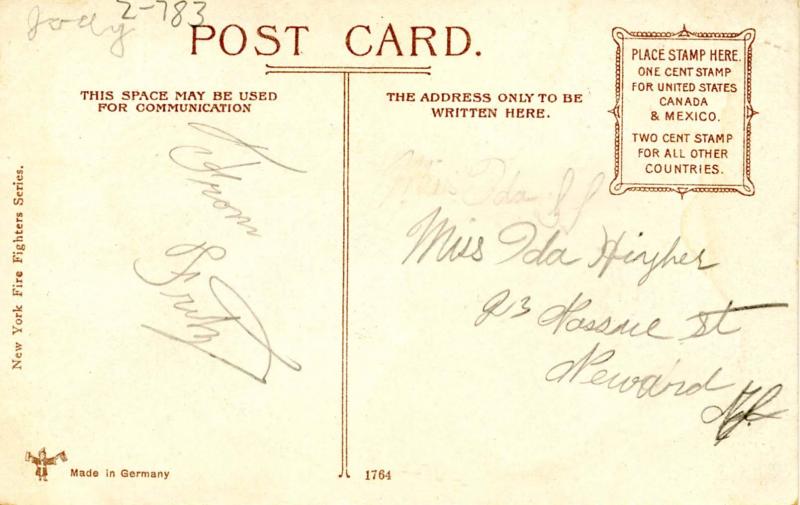 Jody 2-783
POST CARD.
THIS SPACE MAY BE USED
FOR COMMUNICATION
THE ADDRESS ONLY TO BE
WRITTEN HERE.
PLACE STAMP HERE.
ONE CENT STAMP
FOR UNITED STATES
CANADA
& MEXICO.
TWO CENT STAMP
FOR ALL OTHER
COUNTRIES.
From
Fritz
Miss Ida
Miss Ida Hingher
23 Nassaue St
Neward
NJ.
New York Fire Fighters Series.
Made in Germany
1764